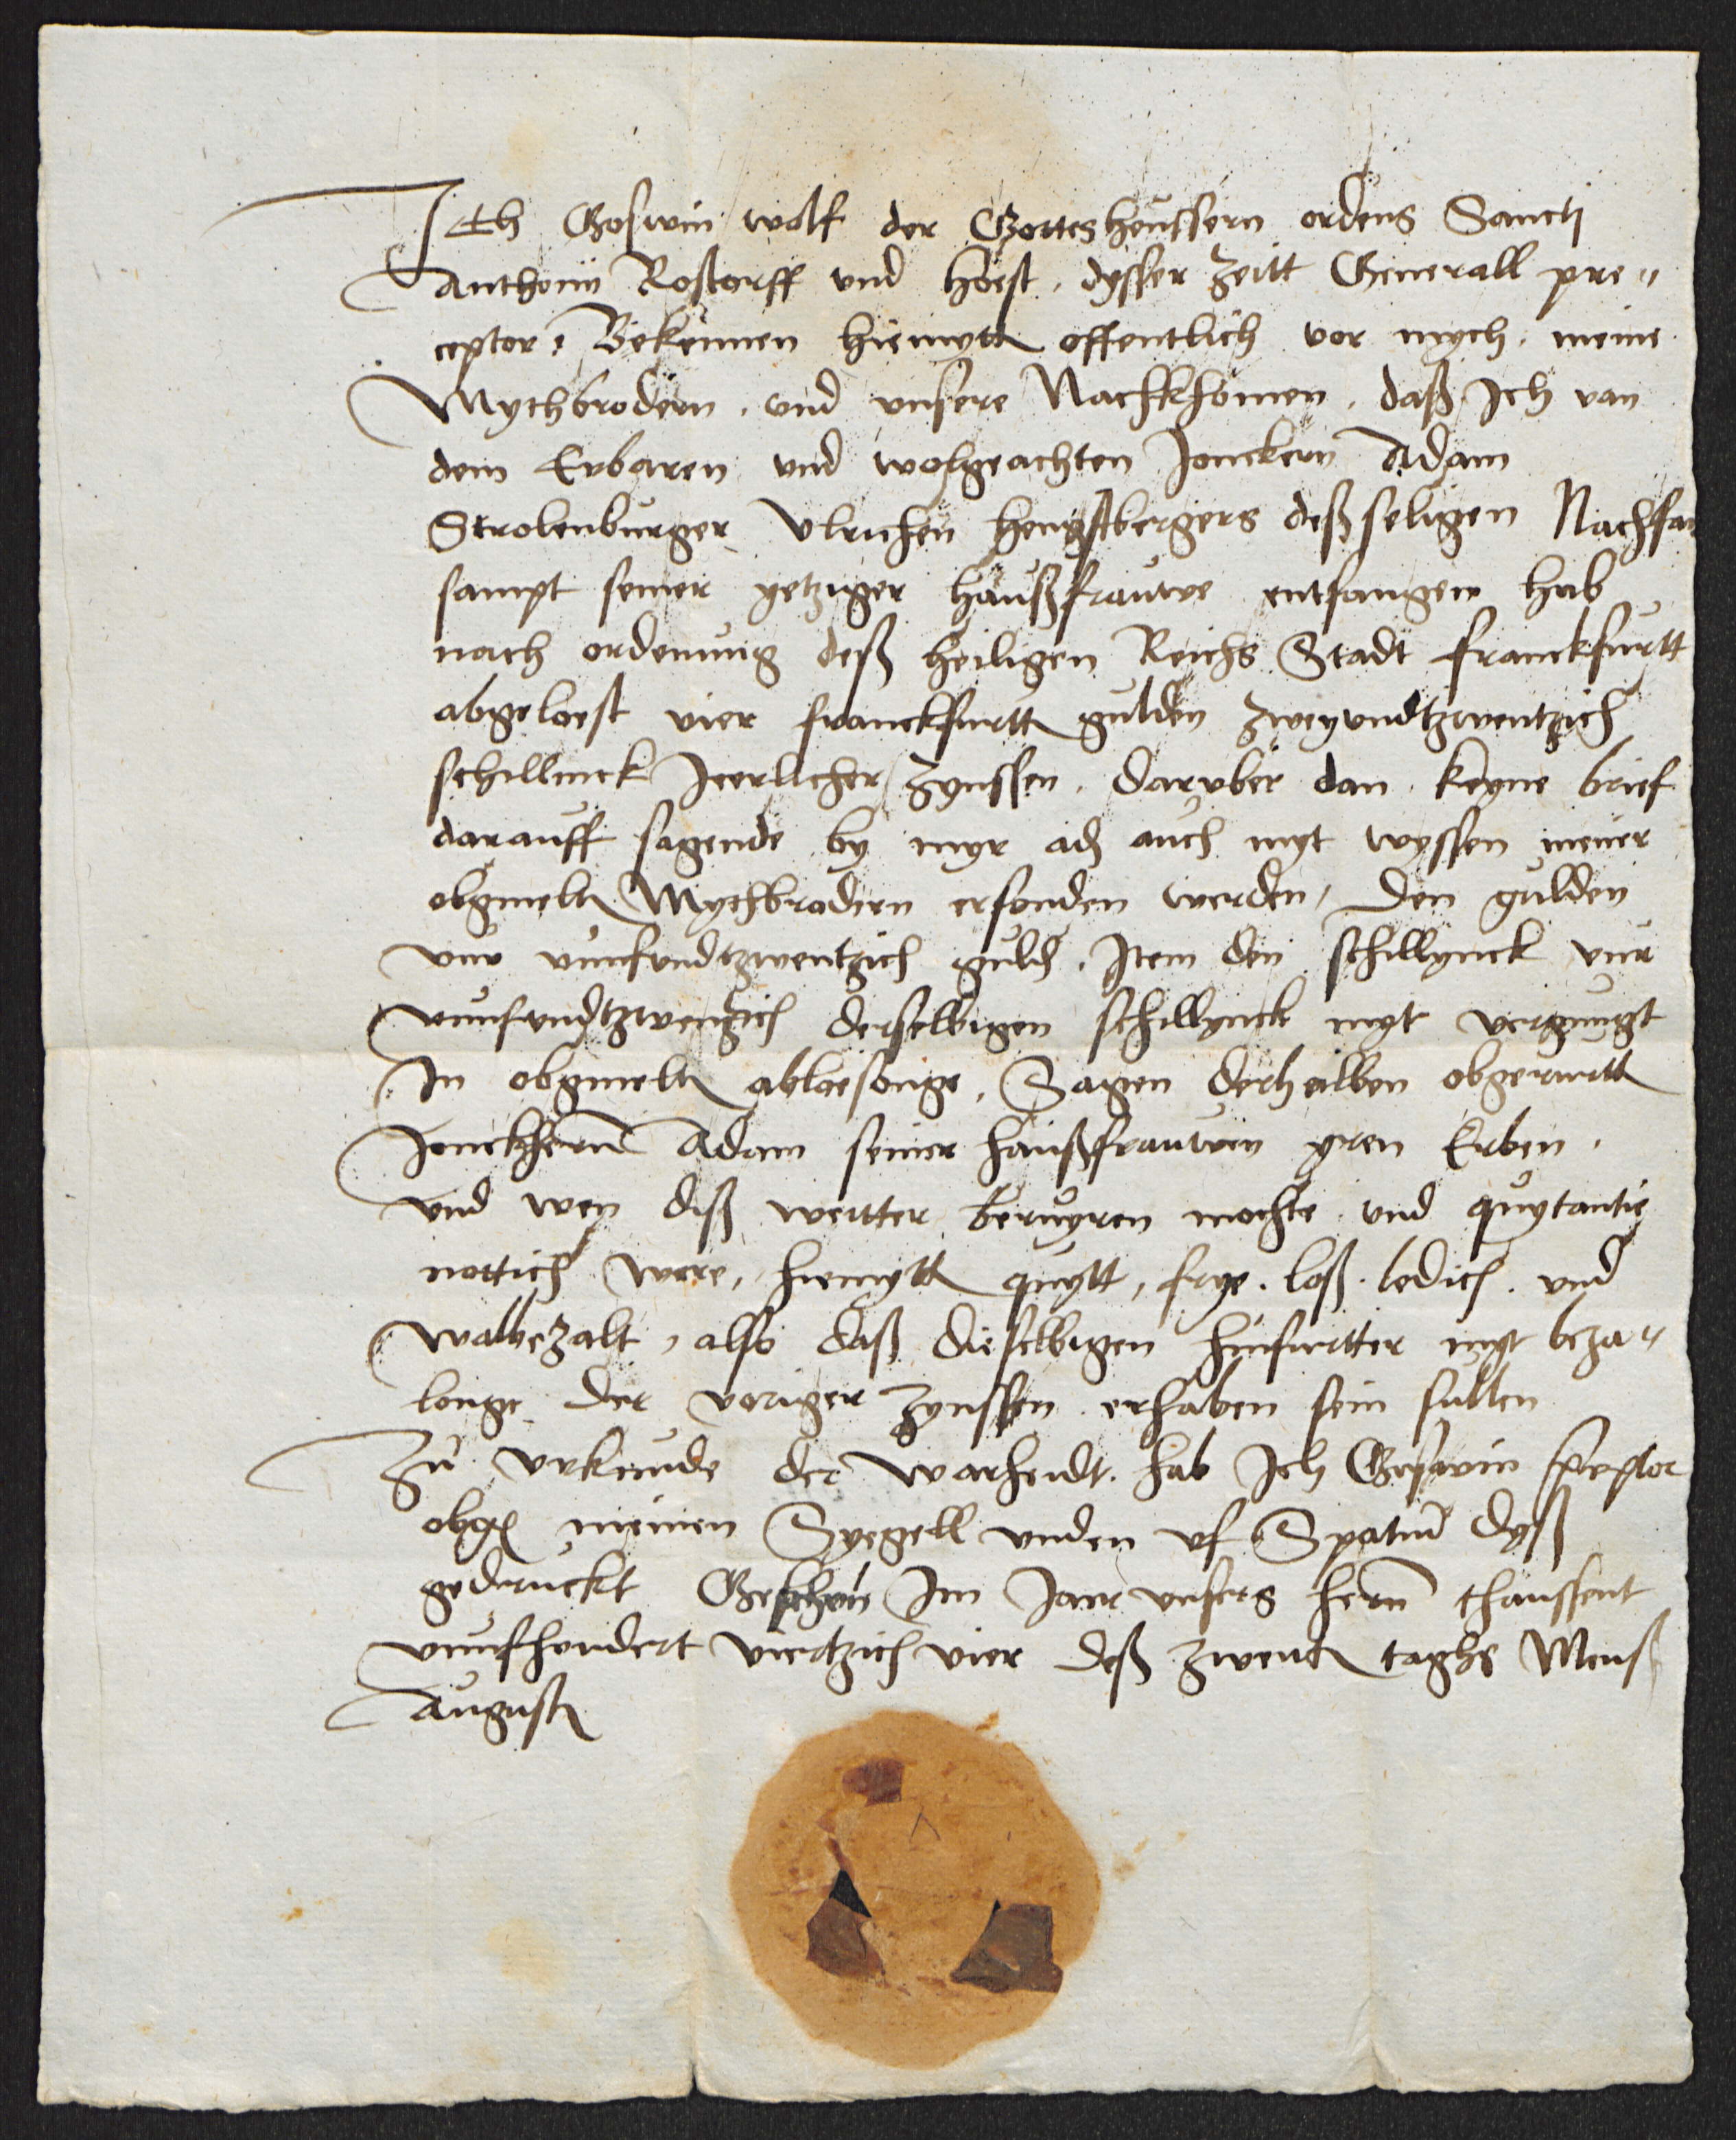 Ich Goswin wolf der Gottesheussern ordens Sancti
Anthonii Rostorff und Hoest, dysser Zeitt Generall pre"
ceptor, Bekennen hiemytt offentlich vor mych, meine
Mythbrodern, und unsere Nachkhomen, daß Ich van
dem Erbaren und wolgeachten Jonckern Adam
Strolenburger Ulrichen Hengstbergers deß seligen Nachfar
sampt seiner yetziger haußfrauwe entfangen hab
nach ordenung deß heiligen Reichs Stadt Franckfurtt
abgeloest vier franckfurtt gulden zweyundtzwentzich
schillinck Jeerlicher Zynssen, darvber dan keyne brief
darauff sagende by myr ad auch myt wyssen meiner
obgmelt Mythbrodern erfonden werden, Den gulden
vur vunfundtzwentzich guld, Item den schillynck vur
vunfundtzwentzich derselbigen schillynck myt vergnugt
In obgmelt abloesonge, Sagen derhalben obgerurtt
Jonckhern Adam seiner haußfrauwen yren Erben,
und wen diß weitter beruyren mochte und quytantie
nottich were, hiemytt quytt, frye, loß, ledich, und
walbezalt, also daß dieselbigen hinfurtter myt beza"
longe der voriger Zynssen erhaben sein sullen
Zu vrkunde der warheidt, hab Ich Goswin preceptor
obg meinen Syegell unden uf Spatiu dyß
gedruckt Geschen Im Jaer unsers hern thaussent
vunfhondert viertzich vier deß zweit taghs Mens
Augusti